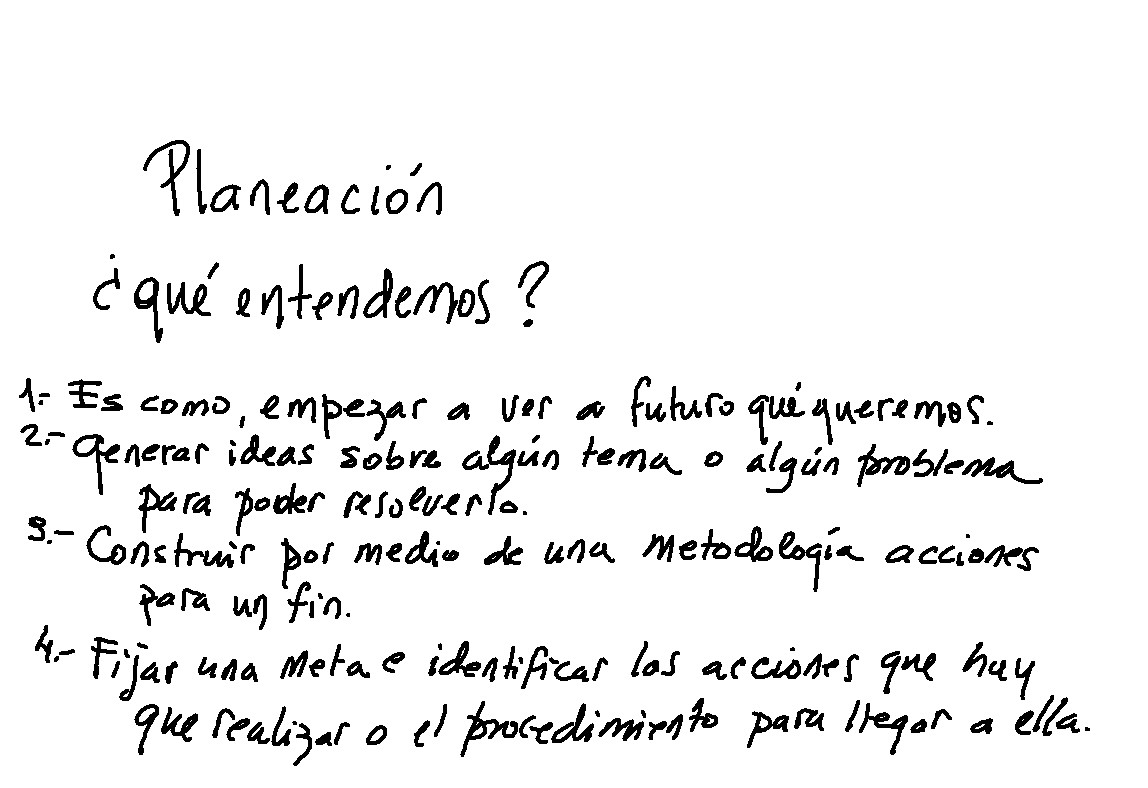 Planeación
¿qué entendemos?
1.- Es como, empezar a ver a futuro qué queremos.
2.- generar ideas sobre algún tema o algún problema
para poder resolverlo.
3.- Construir por medio de una metodología acciones
para un fin.
4.- Fijar una meta e identificar las acciones que hay
que realizar o el procedimiento para llegar a ella.